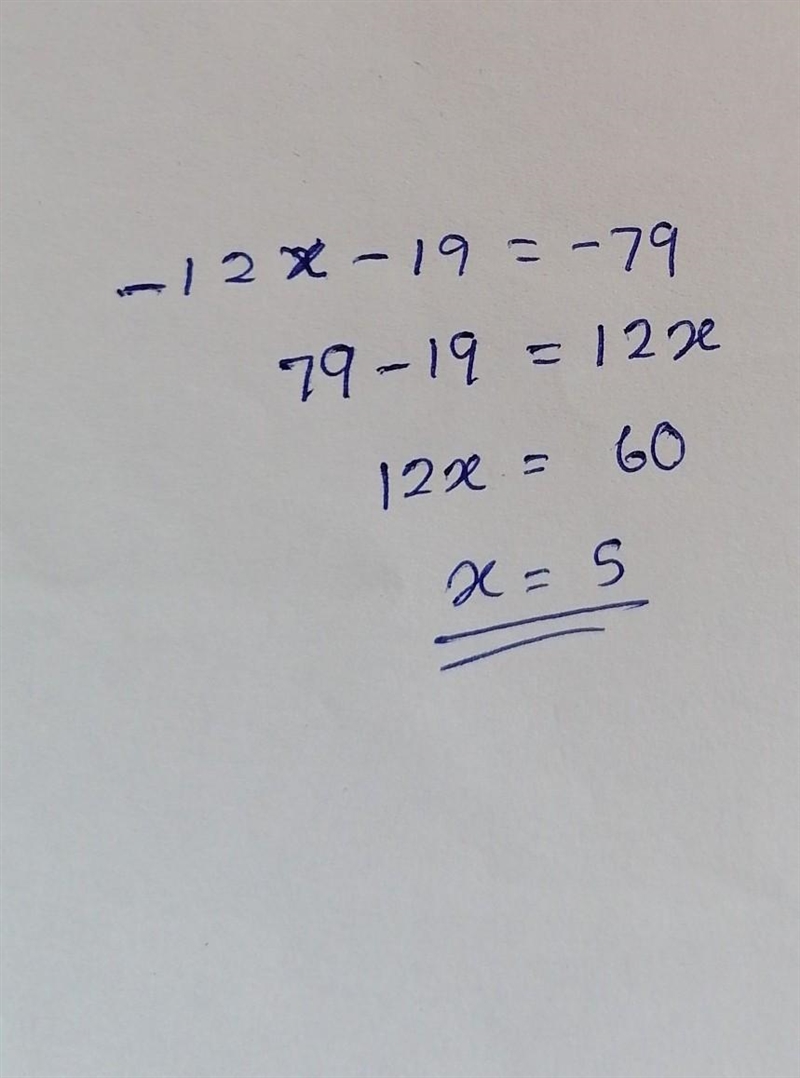 -12x - 19 = -79
79 - 19 = 12x
12x = 60
x = 5